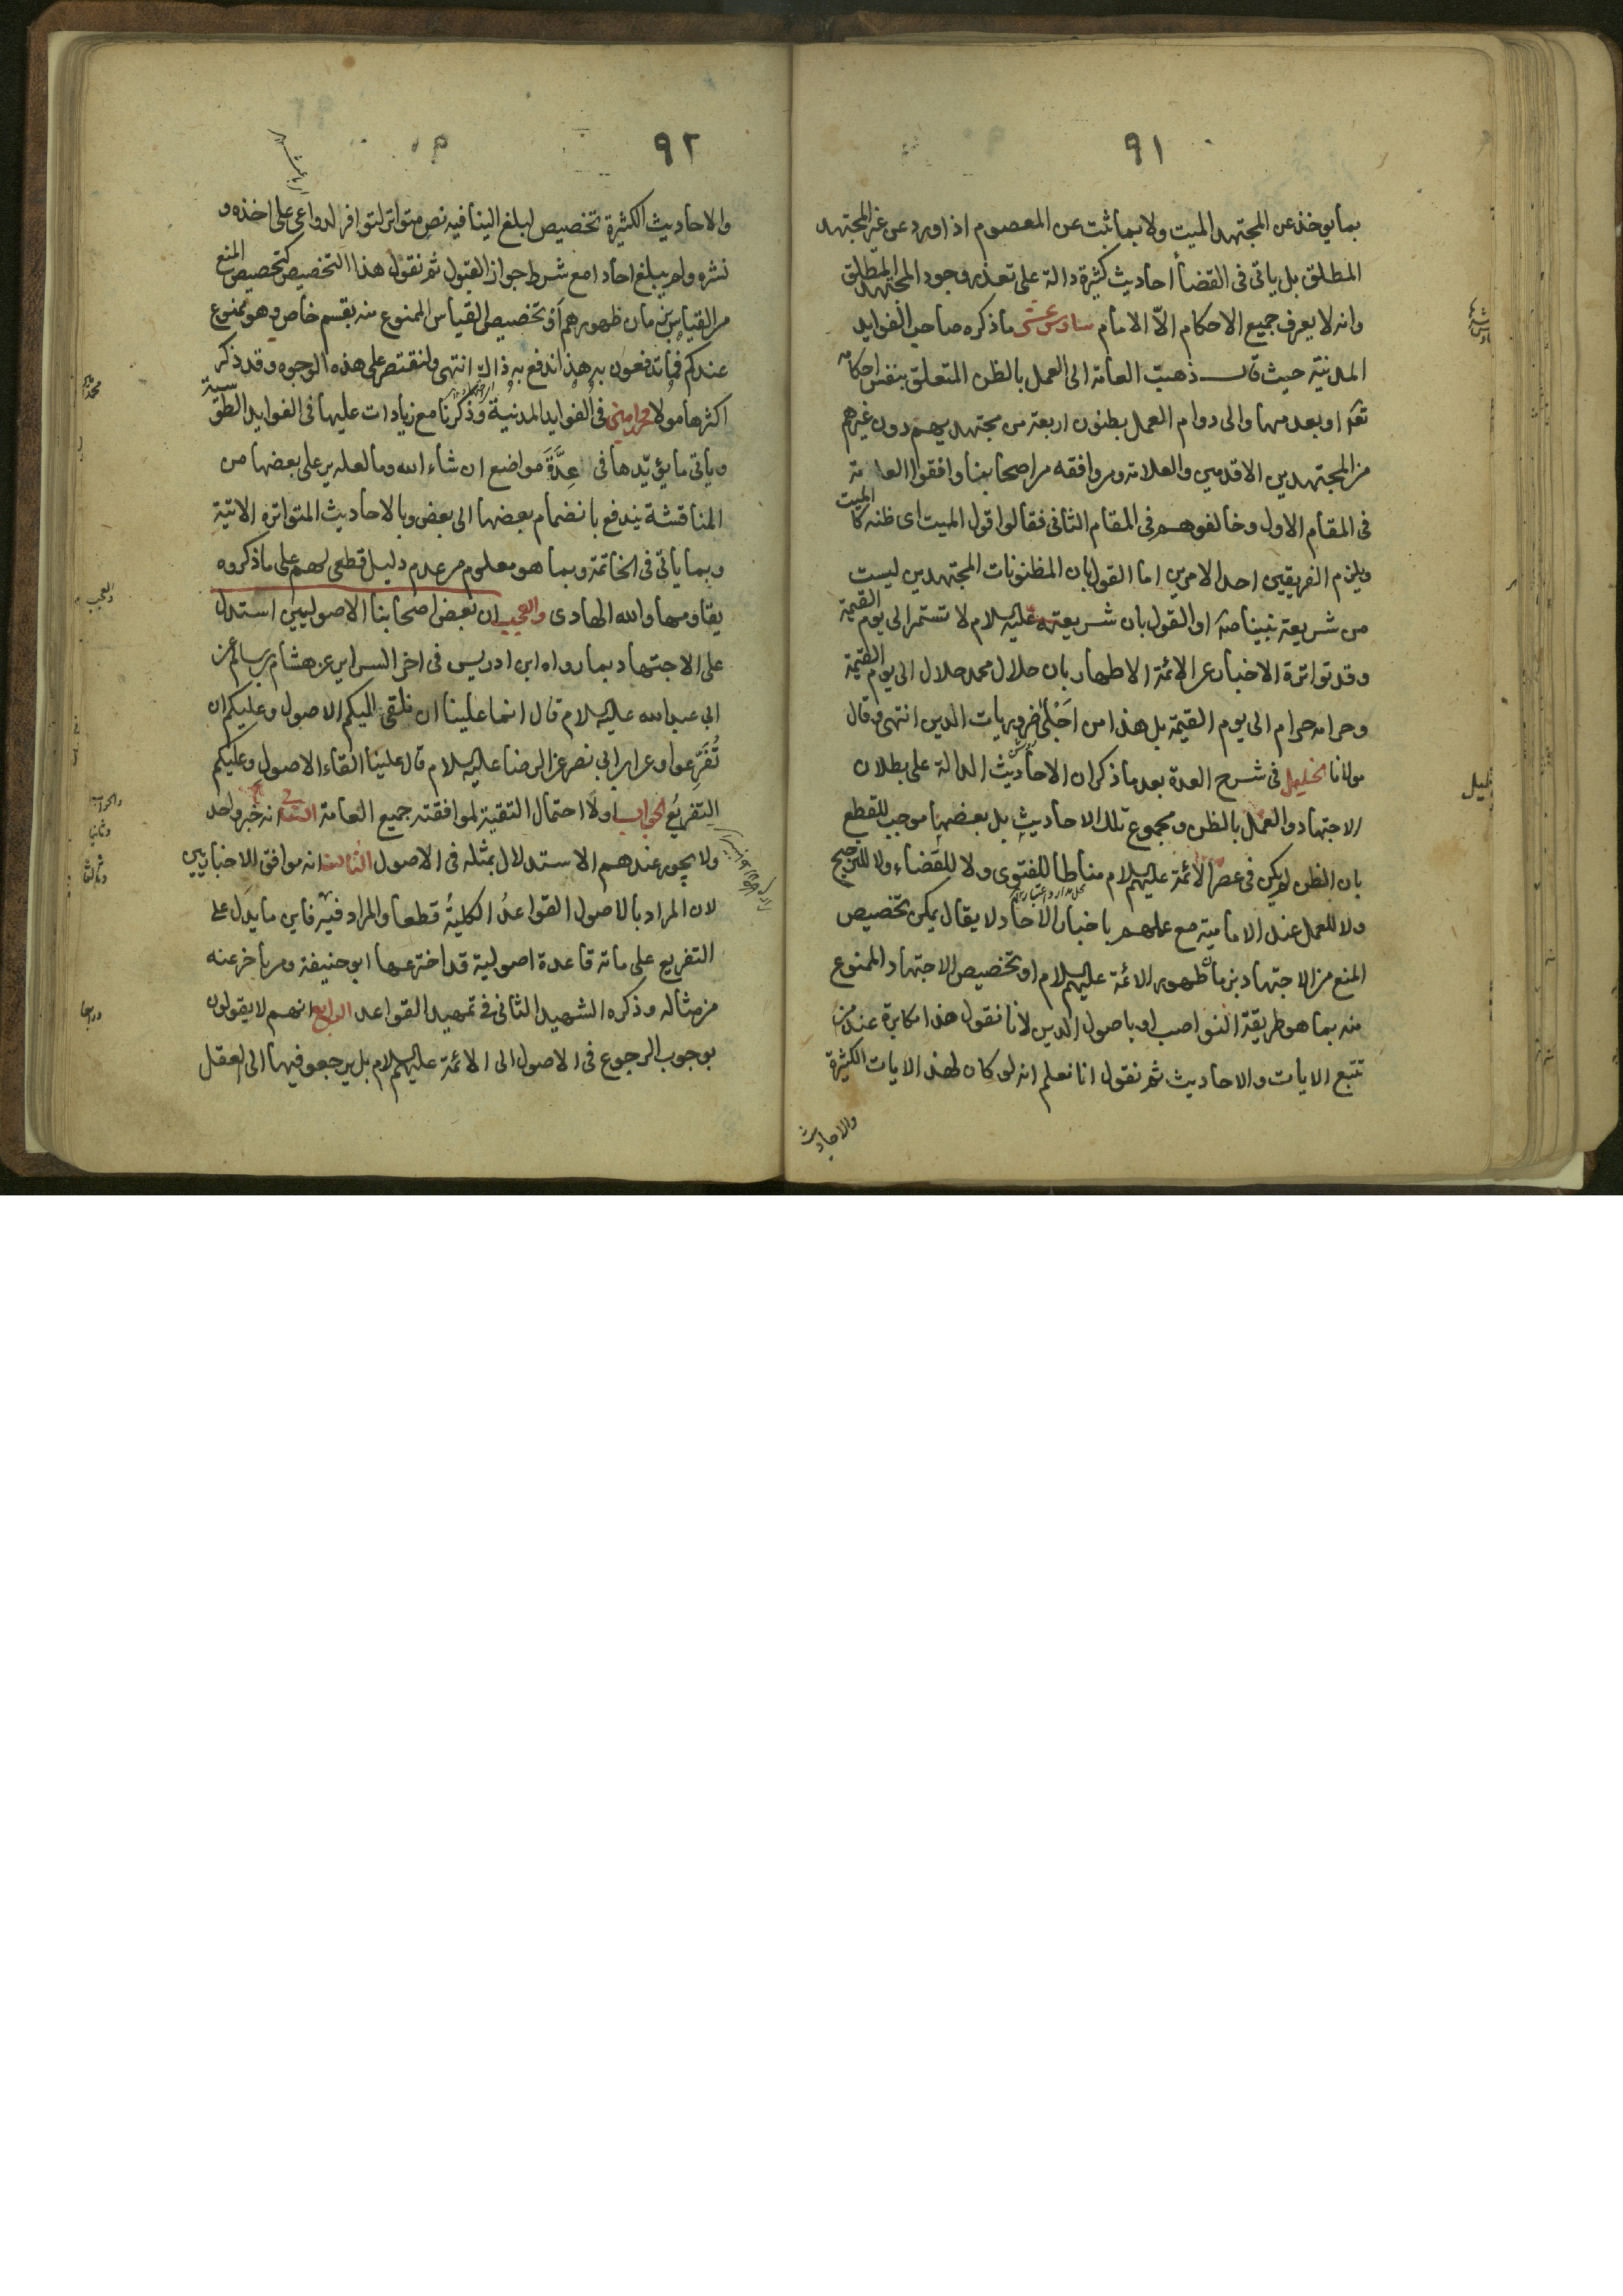 ٩١
بما يوخذ عن المجتهد الميت ولا بما ثبت عن المعصوم اذا ورد عن غير المجتهد
المطلق بل ياتى فى القضأ احاديث كثيرة دالة على تعذر وجود المجتهد المطلق
وانه لا يعرف جميع الاحكام الّا الامام سادس عشر ما ذكره صاحب الفوايد
المدنية حيث قال ذهبت العامة الى العمل بالظن المتعلق بنفس احكامه
تعالى او بعدمها والى دوام العمل بظنون اربعة من مجتهديهم دون غيرهم
من المجتهدين الاقدمين والعلامة ومن وافقه من اصحابنا وافقوا العامة
فى المقام الاول وخالفوهم فى المقام الثانى فقالوا قول الميت اى ظنه كالميت
ويلزم الفريقين احد الامرين اما القول بان المظنونات المجتهدين ليست
من شريعة نبينا ص او القول بان شريعته عليه السلام لا تستمر الى يوم القيمة
وقد تواترة الاخبار عن الائمة الاطهار بان حلال محمد حلال الى يوم القيمة
وحرامه حرام الى يوم القيمة بل هذا من اَجْلىٰ ضروريات الدين انتهى وقال
مولانا الخليل فى شرح العدة بعد ما ذكر ان الاحاديث الدالة على بطلان
الاجتهاد والعمل بالظن ومجموع تلك الاحاديث بل بعضها موجب للقطع
بان الظن لم يكن فى عصر الائمة عليهم السلام مناطا للفتوى ولا للقضاء ولا للترجيح
ولا للعمل عند الامامية مع عملهم باخبار الاحاد لا يقال يمكن تخصيص
المنع من الاجتهاد بزمان ظهور الائمة عليهم السلام او تخصيص الاجتهاد الممنوع
منه بما هو طريقة النواصب او باصول الدين لانا نقول هذا مكابرة عند من
تتبع الايات والاحاديث ثم نقول انا نعلم انه لو كان لهذ الايات الكثيرة
والاحاديث
٩٢
والاحاديث الكثيرة تخصيص لبلغ الينا فيه نص متواتر لتوافر الدواعى على اخذه و
نشره ولم يبلغ احاد امع شرط جواز القبول ثم نقول هذا التخصيص كتخصيص المنع
من القياس بزمان ظهورهم او تخصيص القياس الممنوع منه بقسم خاص وهو ممنوع
عندكم فما تدفعون به هذا ندفع به ذاك انتهى ولنقتصر على هذه الوجوه وقد ذكر
اكثرها مولانا محمد امين فى الفوايد المدنية وذكرنا مع زيادات عليها فى الفوايد الطوسية
وياتى ما يؤيّدها فى عِدَّةِ مواضع ان شاء الله وما لعله يرد على بعضها من
المناقشة يندفع بانضمام بعضها الى بعض وبالاحاديث المتواتره الاتية
وبما ياتى فى الخاتمة وبما هو معلوم من عدم دليل قطعى لهم على ما ذكروه
يقاومها والله الهادى والعجب ان بعض اصحابنا الاصوليين استدل
على الاجتهاد بما رواه ابن ادريس فى اخر السراير عن هشام بن سالم عن
ابى عبد الله عليه السلام قال انما علينا ان نلقى اليكم الاصول وعليكم ان
تُفَرِّعوا وعن ابن ابي نصر عن الرضا عليه السلام قال علينا القاء الاصول وعليكم
التفريعُ الجواب اولا احتمال التقية لموافقته جميع العامة الثانى انه خبر واحد
ولا يجوز عندهم الاستدلال بمثله فى الاصول الثالث انه موافق للاخباريين
لان المراد بالاصول القواعدُ الكليةُ قطعا والمراد فيه فاين ما يدل على
التفريع على مائة قاعدة اصولية قد اخترعها ابو حنيفة ومن تاخر عنه
من مثاله وذكره الشهيد الثانى فى تمهيد القواعد الرابع انهم لا يقولون
بوجوب الرجوع فى الاصول الى الائمة عليهم السلام بل يرجعو فيها الى العقل
والعجب